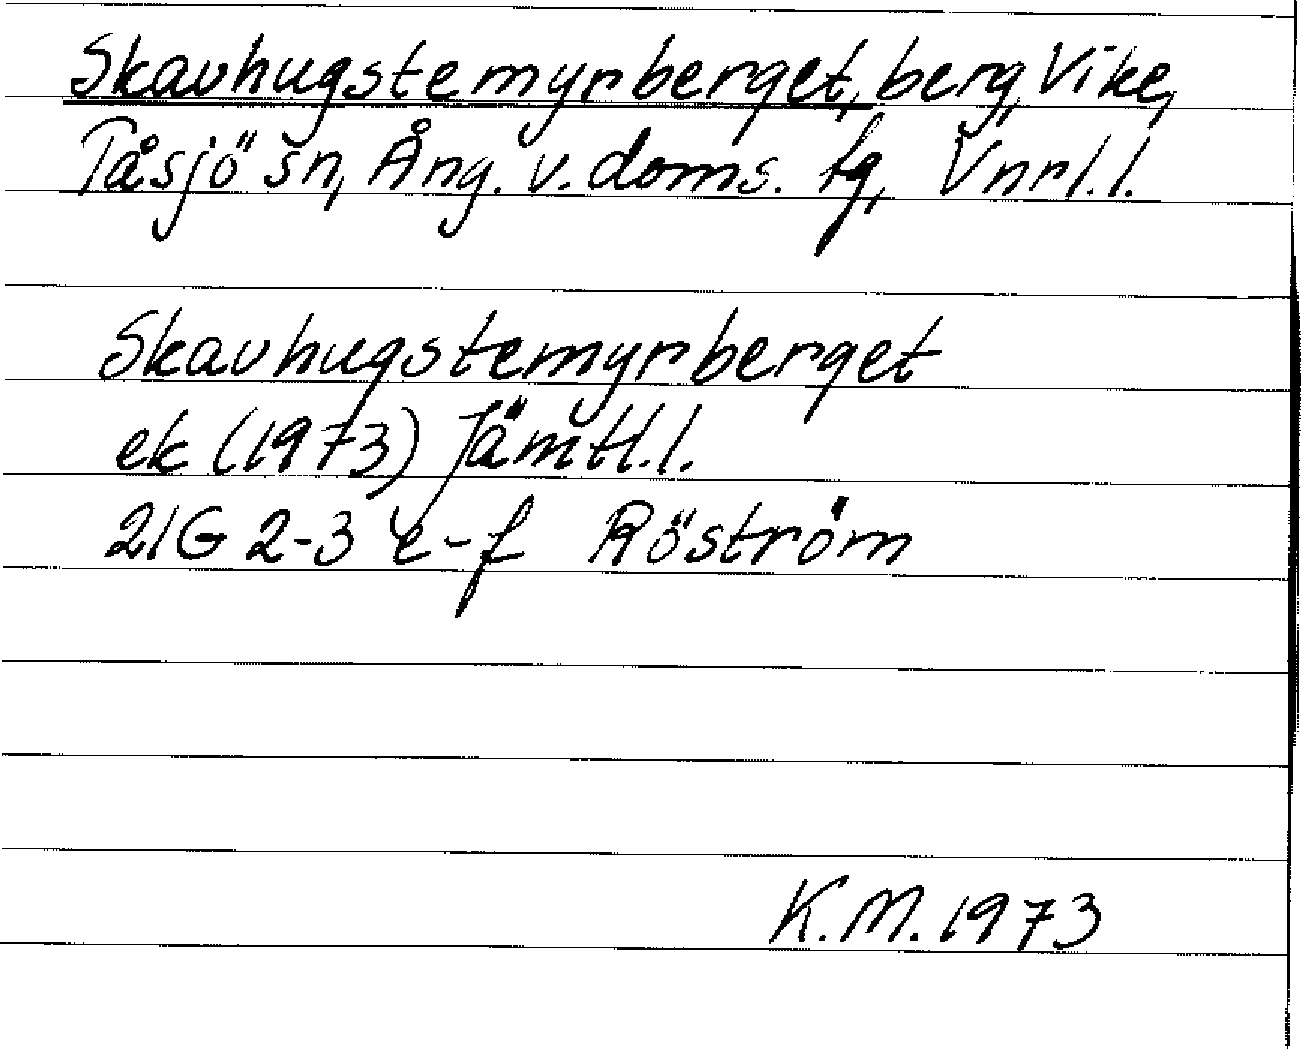 Skavhugstemyrberget, berg, Vike,
Tåsjö sn, Ång. v. doms. fg, Vnrl.l.
Skavhugstemyrberget
ek (1973) Jämtl.l.
21G 2-3 e-f Röström
K.M. 1973